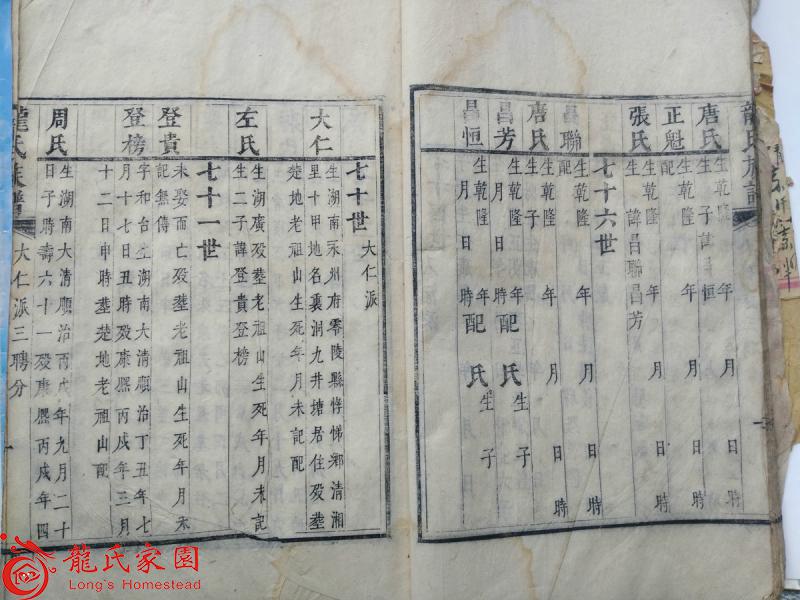 龍氏族譜
唐氏
生乾隆 年 月 日 時
生 子諱昌恒
正魁
生乾隆 年 月 日 時
配
張氏
生 年 月 日 時
生 諱昌聯昌芳
七十六世
昌聯
生乾隆 年 月 日 時
配
唐氏
生 年 月 日 時
生 子
昌芳
生乾隆 年 月 日 時配 氏生 子
昌恒
生乾隆 年 月 日 時配 氏生 子
七十世 大仁派
大仁
生湖南永州府零陵縣悌鄉清湘
里十甲地名裏洞九井塘居住殁塟
楚地老祖山生死年月未記配
左氏
生湖廣殁塟老祖山生死年月未記
生二子諱登貴登榜
七十一世
登貴
未娶而亡殁塟老祖山生死年月未
記無傳
登榜
字和台生湖南大清順治丁丑年七
月十七日丑時殁康熈丙戍年三月
十二日申時塟楚地老祖山配
周氏
生湖南大清順治丙戍年九月二十
日子時壽六十一殁康熈丙戍年四
龍氏族譜
大仁派三聘分
一
龍氏家園
Long's Homestead